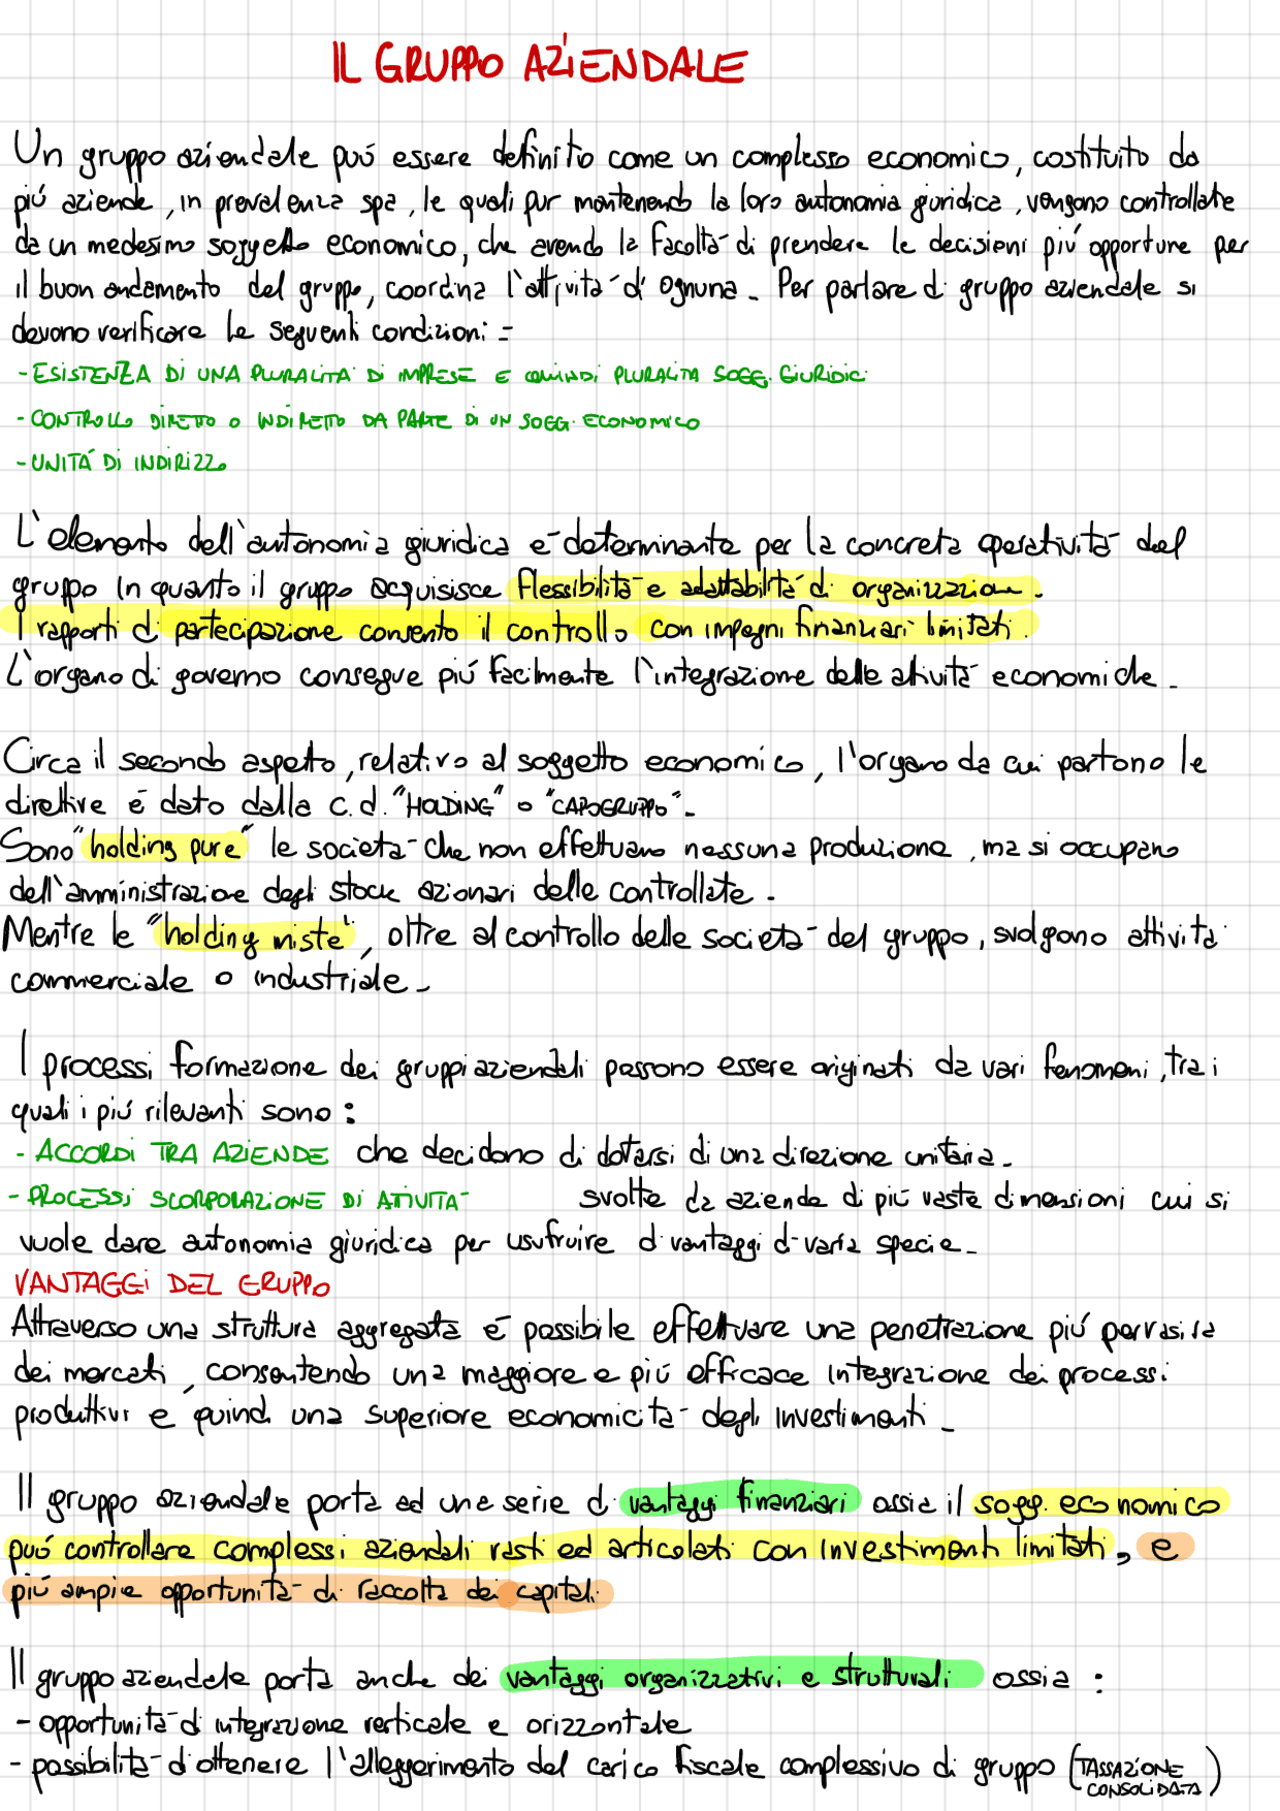 IL GRUPPO AZIENDALE
Un gruppo aziendale può essere definito come un complesso economico, costituito da
più aziende, in prevalenza spa, le quali pur mantenendo la loro autonomia giuridica, vengono controllate
da un medesimo soggetto economico, che avendo la facoltà di prendere le decisioni più opportune per
il buon andamento del gruppo, coordina l'attività di ognuna. Per parlare di gruppo aziendale si
devono verificare le seguenti condizioni:
- ESISTENZA DI UNA PLURALITÀ DI IMPRESE E QUINDI PLURALITÀ SOGG. GIURIDICI
- CONTROLLO DIRETTO O INDIRETTO DA PARTE DI UN SOGG. ECONOMICO
- UNITÀ DI INDIRIZZO
L'elemento dell'autonomia giuridica è determinante per la concreta operatività del
gruppo in quanto il gruppo acquisisce flessibilità e adattabilità di organizzazione.
I rapporti di partecipazione consento il controllo con impegni finanziari limitati.
L'organo di governo consegue più facilmente l'integrazione delle attività economiche.
Circa il secondo aspetto, relativo al soggetto economico, l'organo da cui partono le
direttive è dato dalla c.d. "HOLDING" o "CAPOGRUPPO".
Sono "holding pure" le società che non effettuano nessuna produzione, ma si occupano
dell'amministrazione degli stock azionari delle controllate.
Mentre le "holding miste", oltre al controllo delle società del gruppo, svolgono attività
commerciale o industriale.
I processi formazione dei gruppi aziendali possono essere originati da vari fenomeni, tra i
quali i più rilevanti sono:
- ACCORDI TRA AZIENDE che decidono di dotarsi di una direzione unitaria.
- PROCESSI SCORPORAZIONE DI ATIVITÀ svolte da aziende di più vaste dimensioni cui si
vuole dare autonomia giuridica per usufruire di vantaggi di varia specie.
VANTAGGI DEL GRUPPO
Attraverso una struttura aggregata è possibile effettuare una penetrazione più pervasiva
dei mercati, consentendo una maggiore e più efficace integrazione dei processi
produttivi e quindi una superiore economicità degli investimenti.
Il gruppo aziendale porta ad una serie di vantaggi finanziari ossia il sogg. economico
può controllare complessi aziendali vasti ed articolati con investimenti limitati, e
più ampie opportunità di raccolta dei capitali.
Il gruppo aziendale porta anche dei vantaggi organizzativi e strutturali ossia :
- opportunità di integrazione verticale e orizzontale
- possibilità di ottenere l'alleggerimento del carico fiscale complessivo di gruppo (TASSAZIONE
CONSOLIDATA)